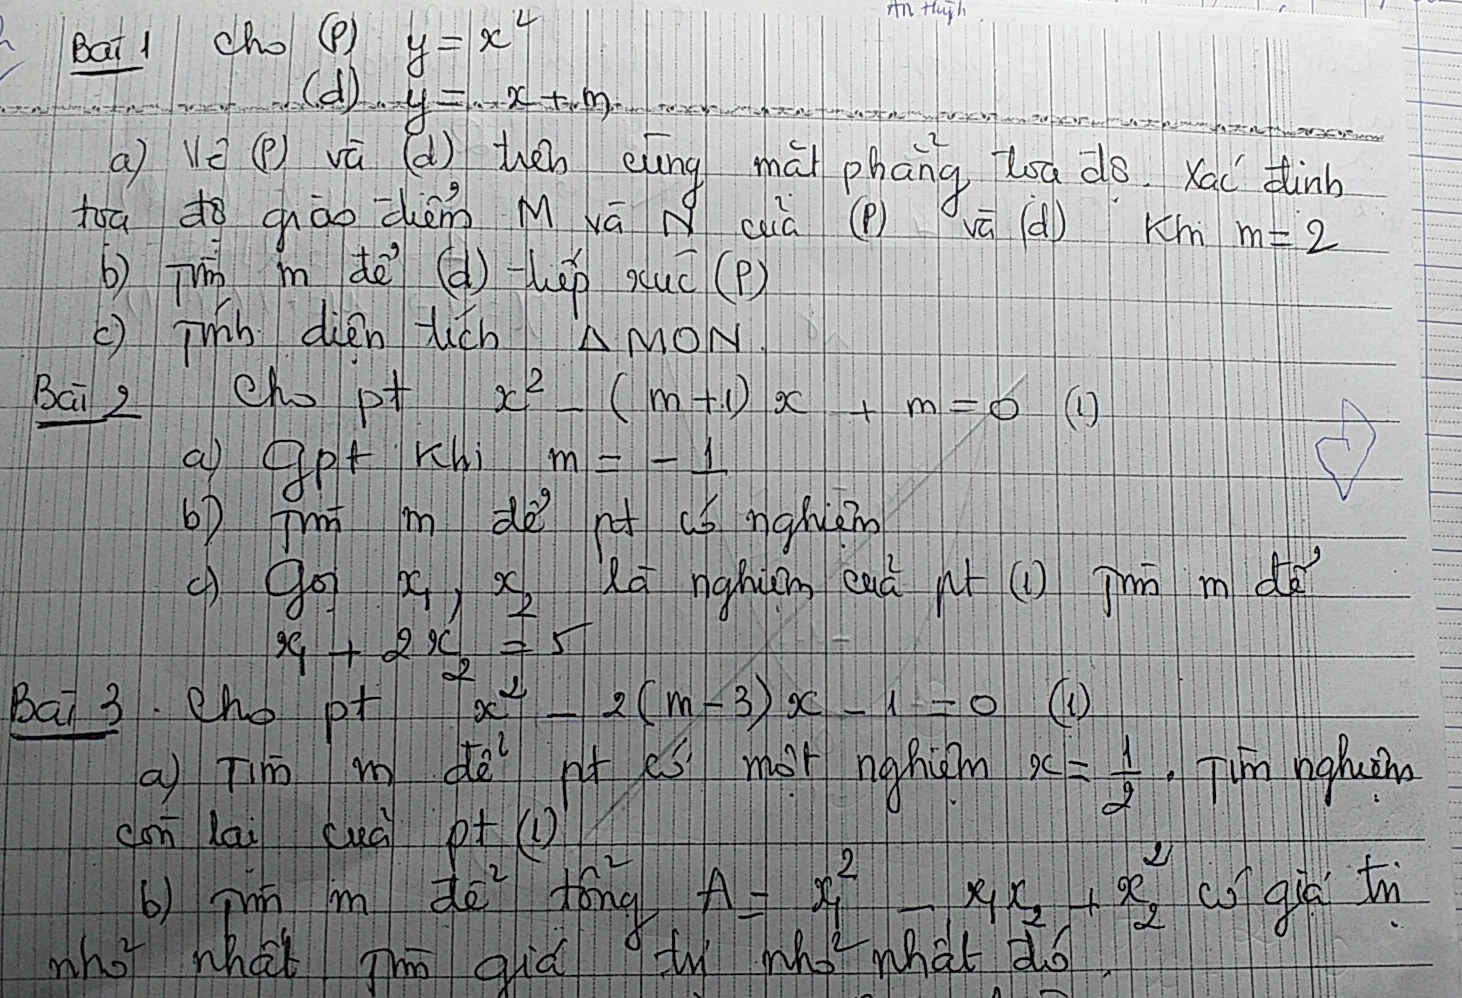 An Huỳnh
Bài 1 Cho (P) y = x²
(d) y = x + m
a) Vẽ (P) và (d) trên cùng mặt phẳng toạ độ. Xác định
toạ độ giao điểm M và N của (P) và (d) khi m = 2
b) Tìm m để (d) tiếp xúc (P)
c) Tính diện tích Δ MON.
Bài 2 Cho pt x² - (m+1) x + m = 0 (1)
a) Gpt khi m = - 1
b) Tìm m để pt có nghiệm
c) Gọi x₁, x₂ là nghiệm của pt (1) Tìm m để
x₁ + 2x₂ = 5
Bài 3. Cho pt x² - 2(m-3)x - 1 = 0 (1)
a) Tìm m để pt có một nghiệm x = 1/2. Tìm nghiệm
còn lại của pt (1)
b) Tìm m để tổng A = x₁² - x₁x₂ + x₂² có giá trị
nhỏ nhất. Tìm giá trị nhỏ nhất đó.